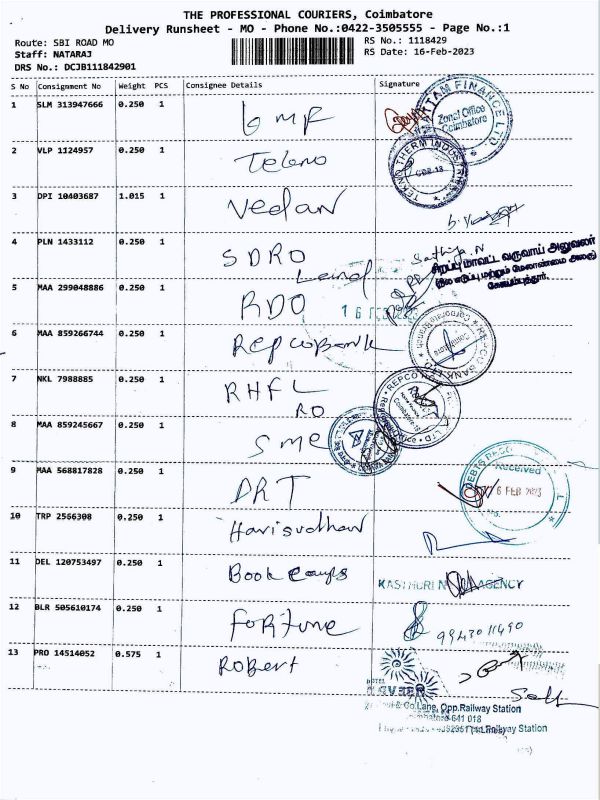 THE PROFESSIONAL COURIERS, Coimbatore
Delivery Runsheet - MO - Phone No.:0422-3505555 - Page No.:1
Route: SBI ROAD MO
RS No.: 1118429
Staff: NATARAJ
RS Date: 16-Feb-2023
DRS No.: DCJB111842901
S No Consignment No Weight PCS Consignee Details Signature
1 SLM 313947666 0.250 1 GMF
FINANCE LTD.
Zonal Office
Coimbatore
2 VLP 1124957 0.250 1 Tekno
TEKNO THERM INDUSTRIES
3 DPI 10403687 1.015 1 Vedan
4 PLN 1433112 0.250 1 SDRO
Sathiya.N
சிறப்பு மாவட்ட வருவாய் அலுவலர்
(நில எடுப்பு மற்றும் மேலாண்மை அலகு)
கோயம்புத்தூர்.
5 MAA 299048886 0.250 1 RDO
16 FEB 2023
6 MAA 859266744 0.250 1 REPCOBANK
REPCO BANK LTD.
7 NKL 7988885 0.250 1 RHFL
RO
REPCO
8 MAA 859245667 0.250 1 SME
9 MAA 568817828 0.250 1 DRT
Received
6 FEB 2023
10 TRP 2566308 0.250 1 Harisudhan
11 DEL 120753497 0.250 1 Book
KASTHURI AGENCY
12 BLR 505610174 0.250 1 Fortune
99430 11490
13 PRO 14514052 0.575 1 Robert
HOTEL
Lane, Opp.Railway Station
641 018
Railway Station